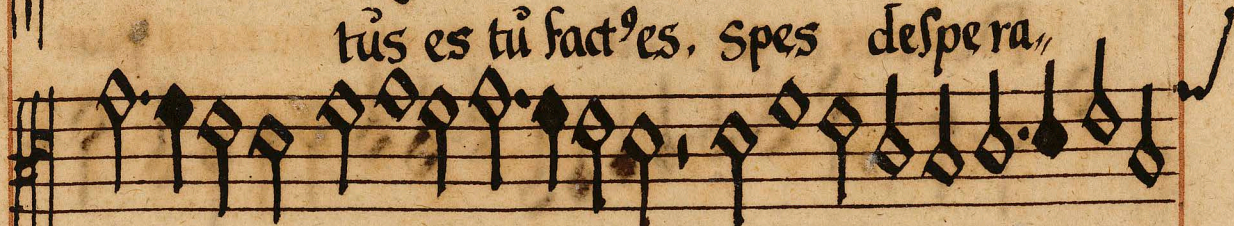 tus es tu fact⁹ es. Spes deſpera„